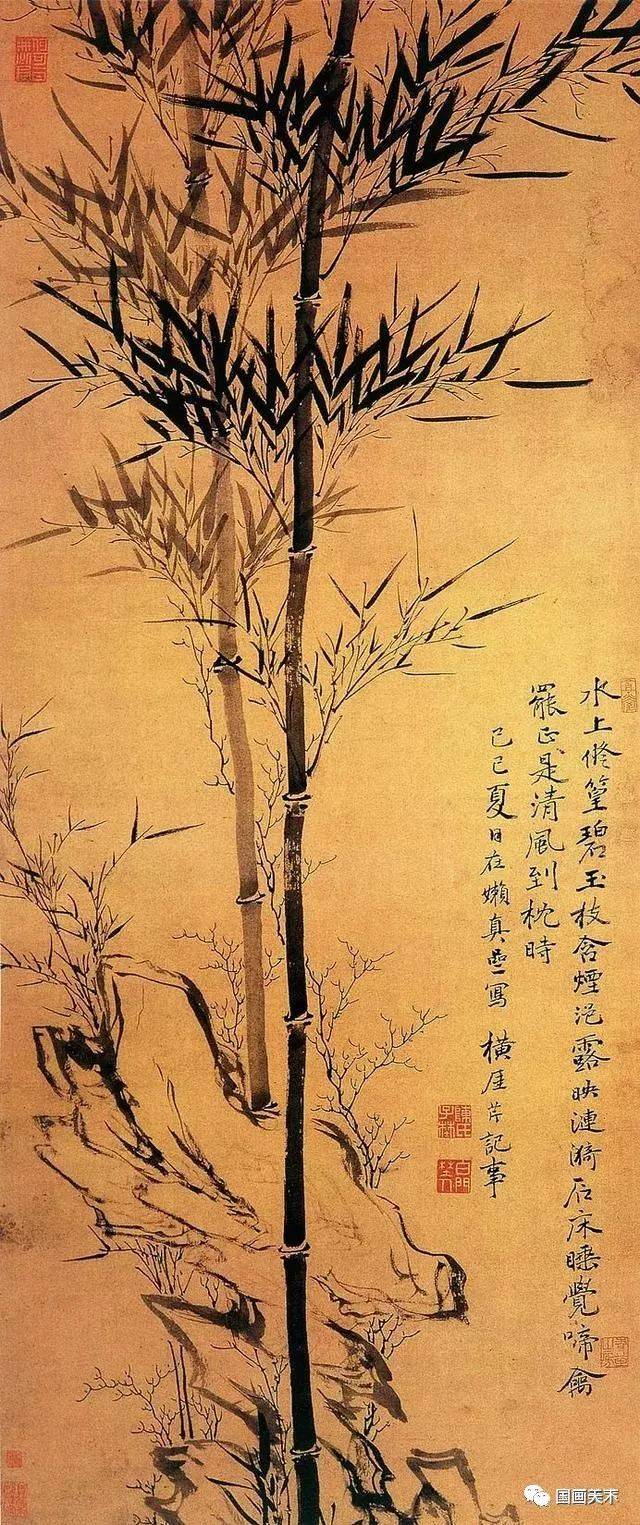 水上脩篁碧玉枝含煙浥露映漣漪石床睡覺啼禽
罷正是清風到枕時
己巳夏日在嬾真寫 橫厓芹記事
国画美禾